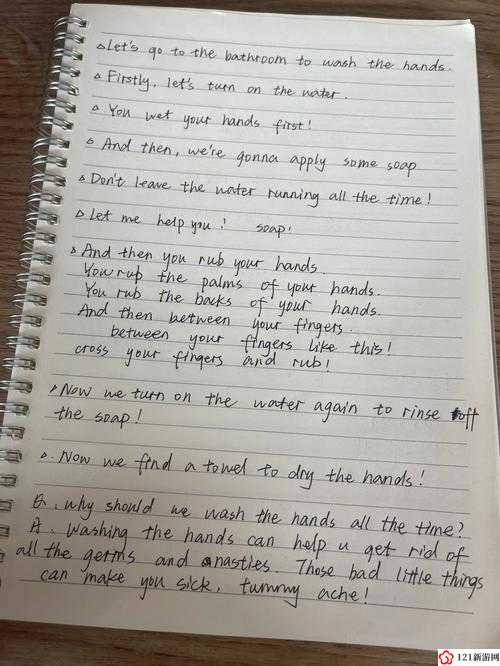 △Let's go to the bathroom to wash the hands.
△Firstly, let's turn on the water.
△You wet your hands first!
△And then, we're gonna apply some soap
△Don't leave the water running all the time!
△Let me help you! soap!
△And then you rub your hands.
You rub the palms of your hands.
You rub the backs of your hands.
And then between your fingers.
between your fingers like this!
cross your fingers and rub!
△Now we turn on the water again to rinse off
the soap!
△Now we find a towel to dry the hands!
B. why should we wash the hands all the time?
A. Washing the hands can help u get rid of
all the germs and nasties. Those bad little things
can make you sick, tummy ache!
121新游网